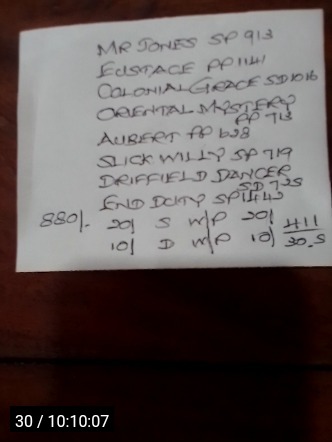 MR JONES SP 913
EUSTACE PP 1141
COLONIAL GRACE SD 1016
ORIENTAL MYSTERY
PP 713
AUBERT PP 628
SLICK WILLY SP 719
DRIFFIELD DANCER
SD 725
END DCITY SP 1442
880/. 20/ S W/P 20/ 411
10/ D W/P 10/ 30.5
30 / 10:10:07